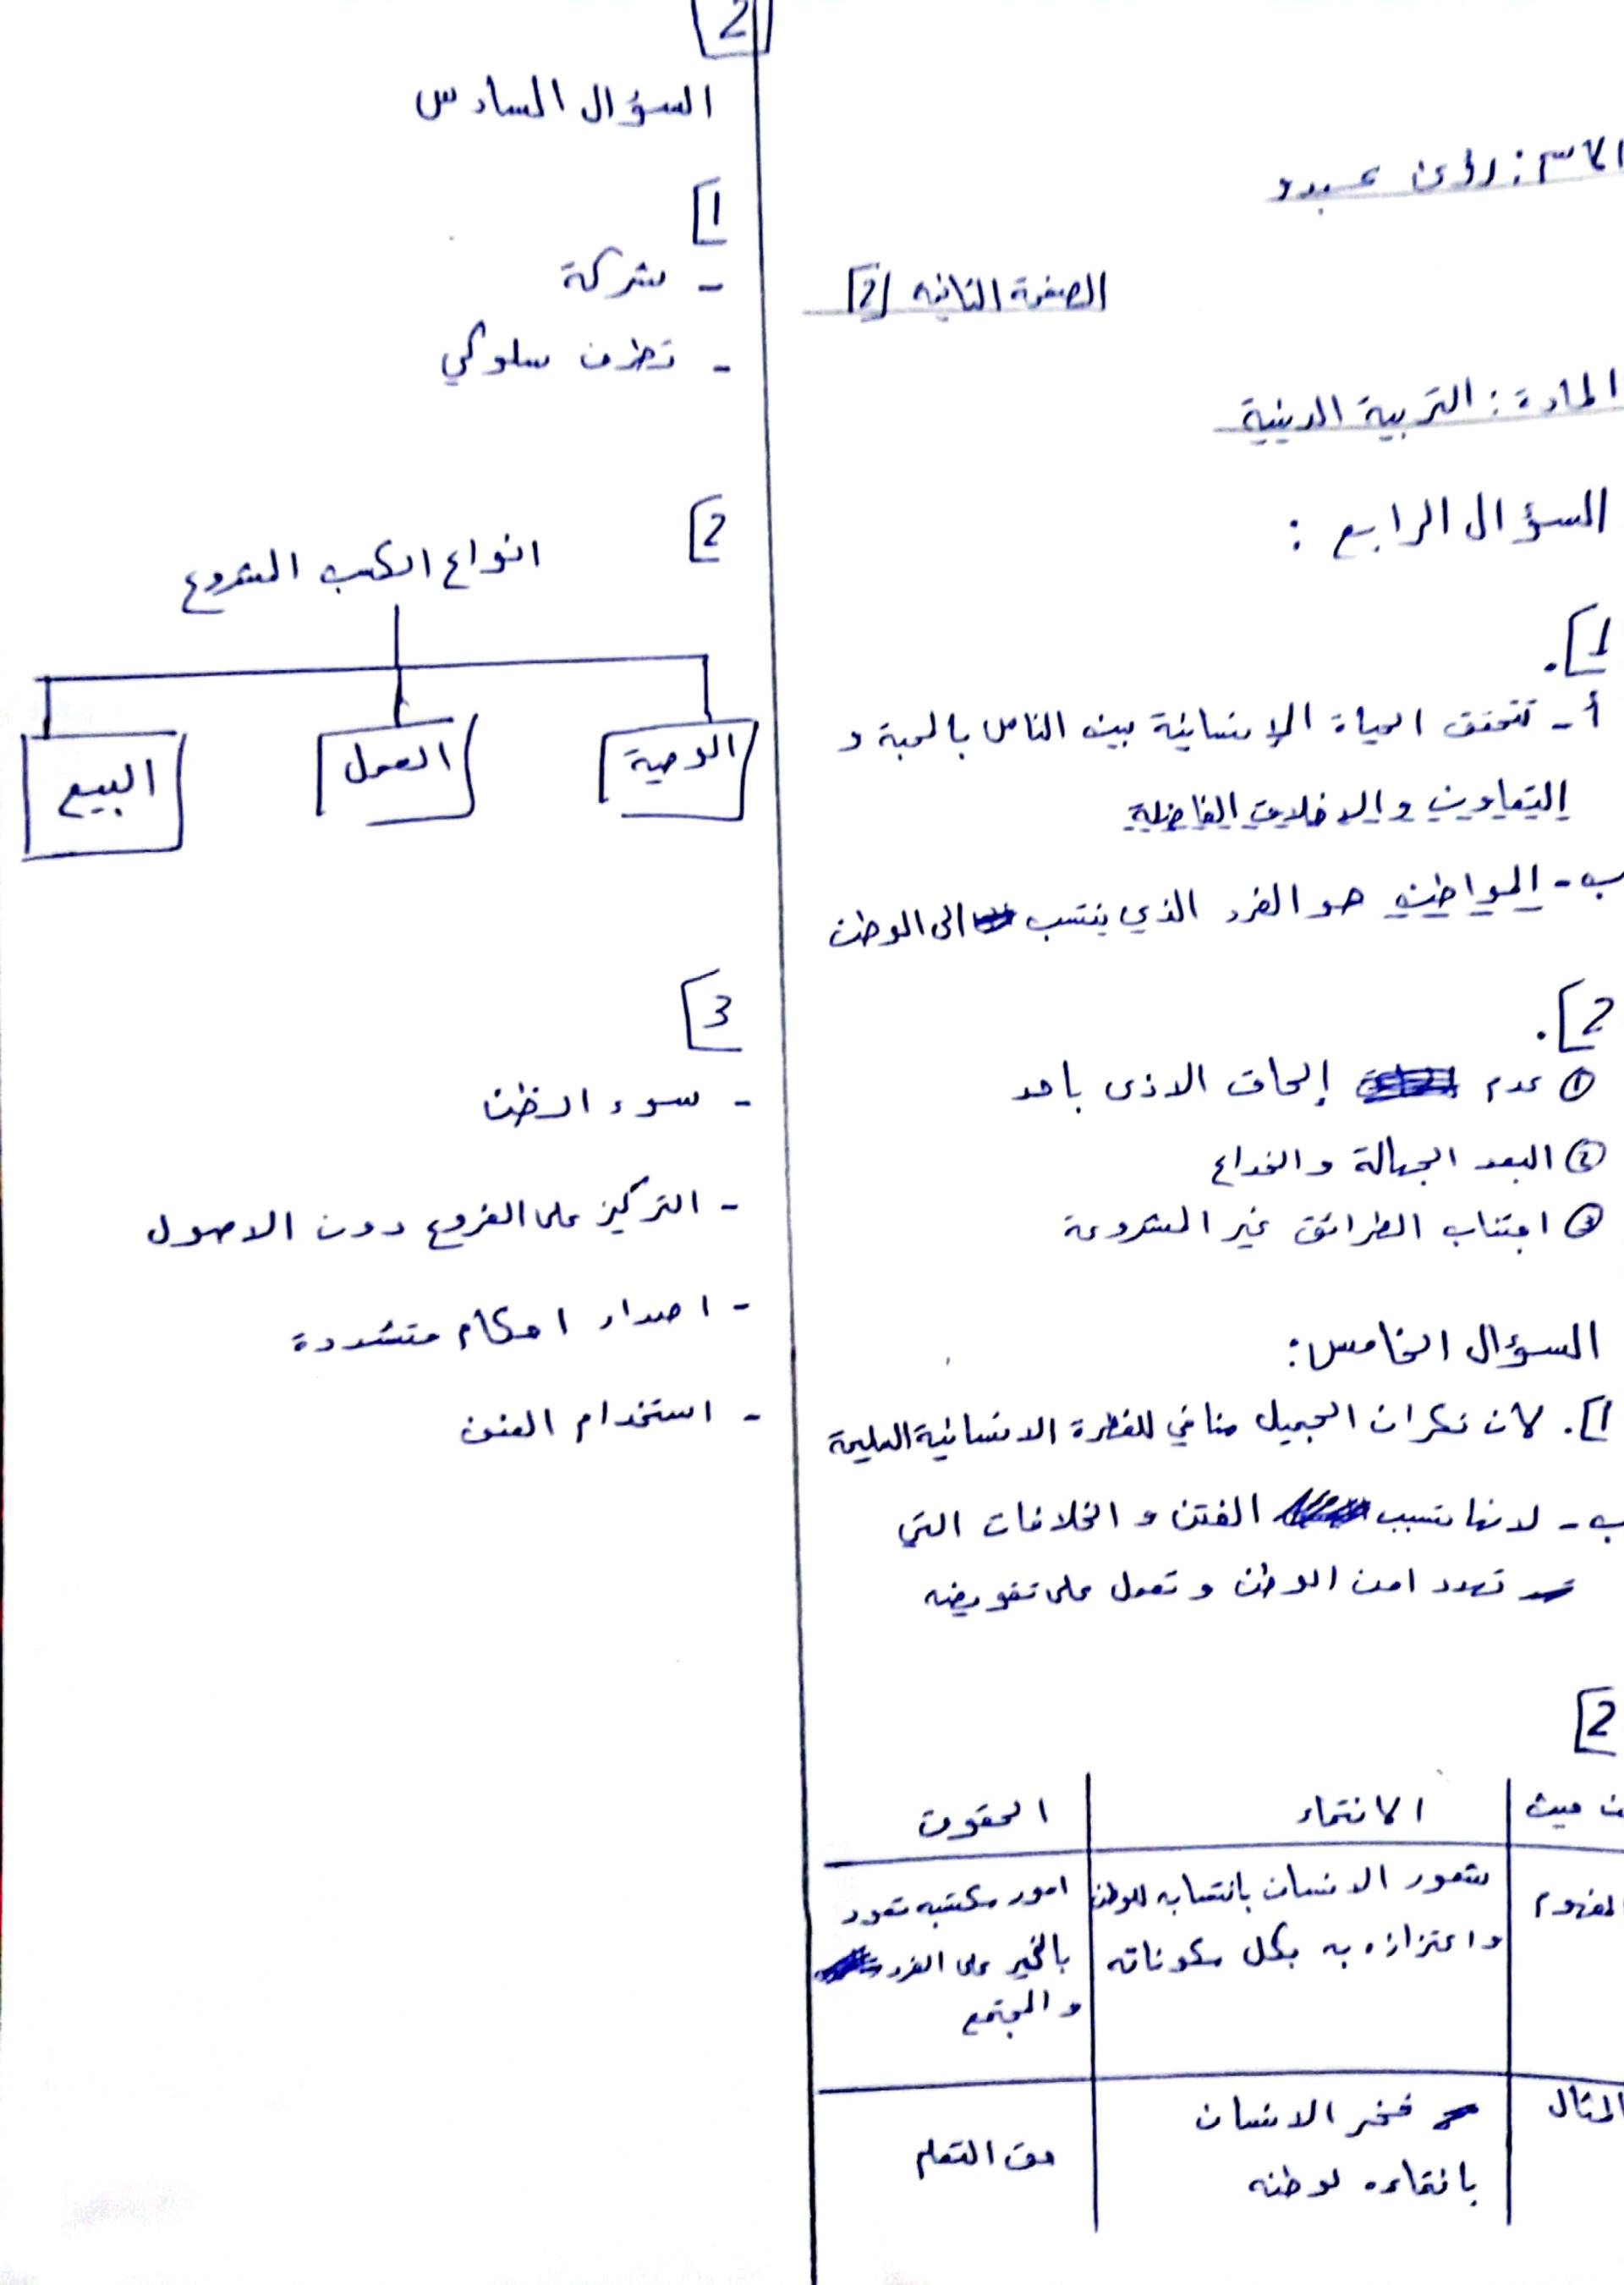 الاسم: رؤى عبدو
الصفحة الثانيه [2]
المادة: التربية الدينية
السؤال الرابع:
[1.
أ- تتحقق الحياة الإنسانية بين الناس بالمحبة و
التعاون والاخلاق الفاضلة
ب- المواطن هو الفرد الذي ينتسب الى الوطن
[2.
① عدم إلحاق الاذى باحد
② البعد الجهالة والخداع
③ اجتناب الطرائق غير المشروعة
السؤال الخامس:
[1. لان نكران الجميل منافي للفطرة الانسانية السليمة
ب- لانها تسبب الفتن و الخلافات التي
تهدد امن الوطن وتعمل على تقويضه
[2
من حيث الانتماء الحقوق
المفهوم شعور الانسان بانتسابه للوطن امور مكتسبه تعود
واعتزازه به بكل مكوناته بالخير على الفرد
والمجتمع
المثال فخر الانسان حق التعلم
بانتماءه لوطنه
2
السؤال السادس
[1
- شركة
- تطرف سلوكي
[2
انواع الكسب المشروع
الوصية العمل البيع
[3
- سوء الظن
- التركيز على الفروع دون الاصول
- اصدار احكام متشددة
- استخدام العنف